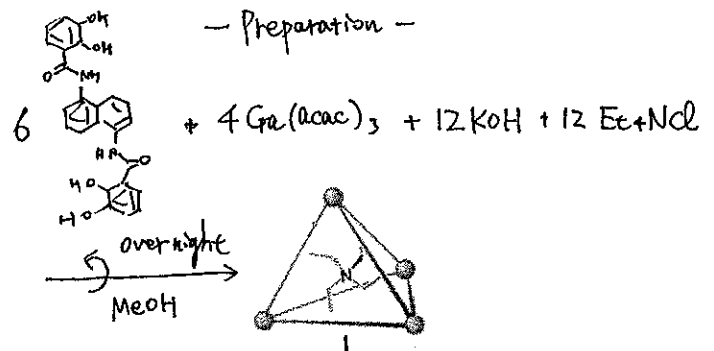 — Preparation —
OH
OH
O
NH
6
+ 4 Ga(acac)₃ + 12 KOH + 12 Et₄NCl
HN
O
HO
HO
overnight
MeOH
N
1